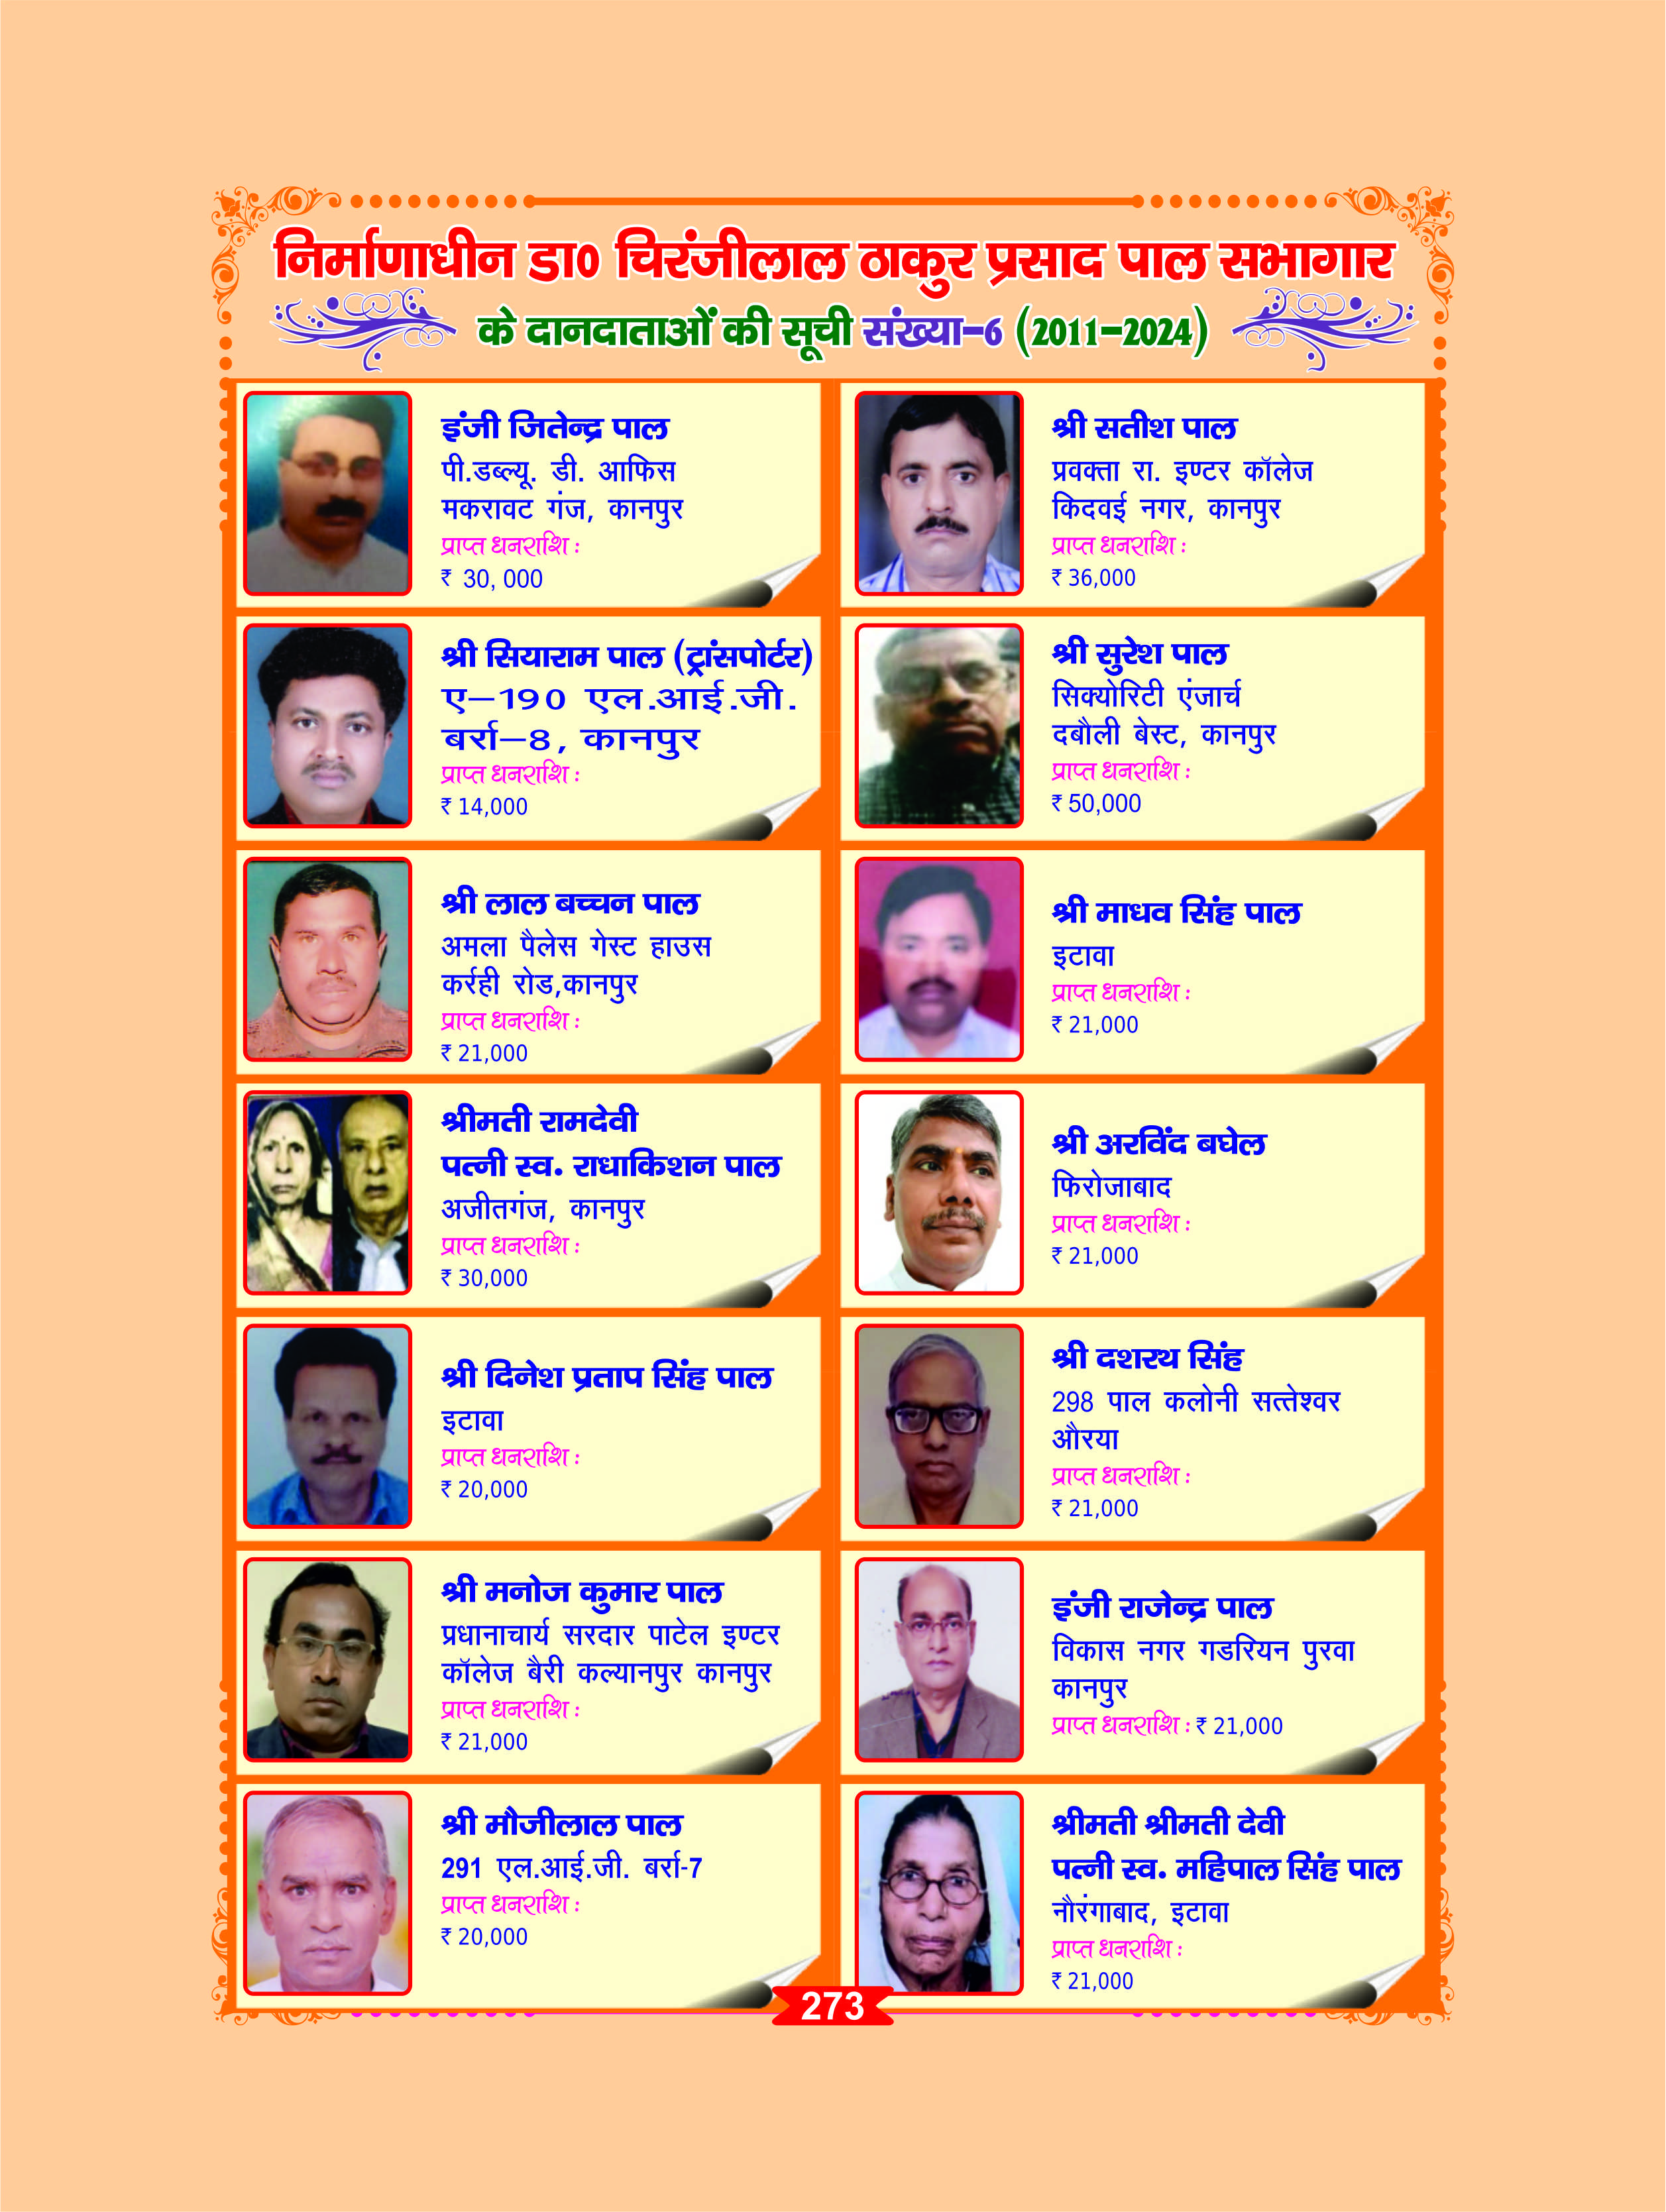 निर्माणाधीन डा0 चिरंजीलाल ठाकुर प्रसाद पाल सभागार
के दानदाताओं की सूची संख्या-6 (2011-2024)
इंजी जितेन्द्र पाल
पी.डब्ल्यू. डी. आफिस
मकरावट गंज, कानपुर
प्राप्त धनराशि :
₹ 30, 000
श्री सतीश पाल
प्रवक्ता रा. इण्टर कॉलेज
किदवई नगर, कानपुर
प्राप्त धनराशि :
₹ 36,000
श्री सियाराम पाल (ट्रांसपोर्टर)
ए–190 एल.आई.जी.
बर्रा–8, कानपुर
प्राप्त धनराशि :
₹ 14,000
श्री सुरेश पाल
सिक्योरिटी एंजार्च
दबौली बेस्ट, कानपुर
प्राप्त धनराशि :
₹ 50,000
श्री लाल बच्चन पाल
अमला पैलेस गेस्ट हाउस
कर्रही रोड,कानपुर
प्राप्त धनराशि :
₹ 21,000
श्री माधव सिंह पाल
इटावा
प्राप्त धनराशि :
₹ 21,000
श्रीमती रामदेवी
पत्नी स्व. राधाकिशन पाल
अजीतगंज, कानपुर
प्राप्त धनराशि :
₹ 30,000
श्री अरविंद बघेल
फिरोजाबाद
प्राप्त धनराशि :
₹ 21,000
श्री दिनेश प्रताप सिंह पाल
इटावा
प्राप्त धनराशि :
₹ 20,000
श्री दशरथ सिंह
298 पाल कलोनी सत्तेश्वर
औरया
प्राप्त धनराशि :
₹ 21,000
श्री मनोज कुमार पाल
प्रधानाचार्य सरदार पाटेल इण्टर
कॉलेज बैरी कल्यानपुर कानपुर
प्राप्त धनराशि :
₹ 21,000
इंजी राजेन्द्र पाल
विकास नगर गडरियन पुरवा
कानपुर
प्राप्त धनराशि : ₹ 21,000
श्री मौजीलाल पाल
291 एल.आई.जी. बर्रा-7
प्राप्त धनराशि :
₹ 20,000
श्रीमती श्रीमती देवी
पत्नी स्व. महिपाल सिंह पाल
नौरंगाबाद, इटावा
प्राप्त धनराशि :
₹ 21,000
273